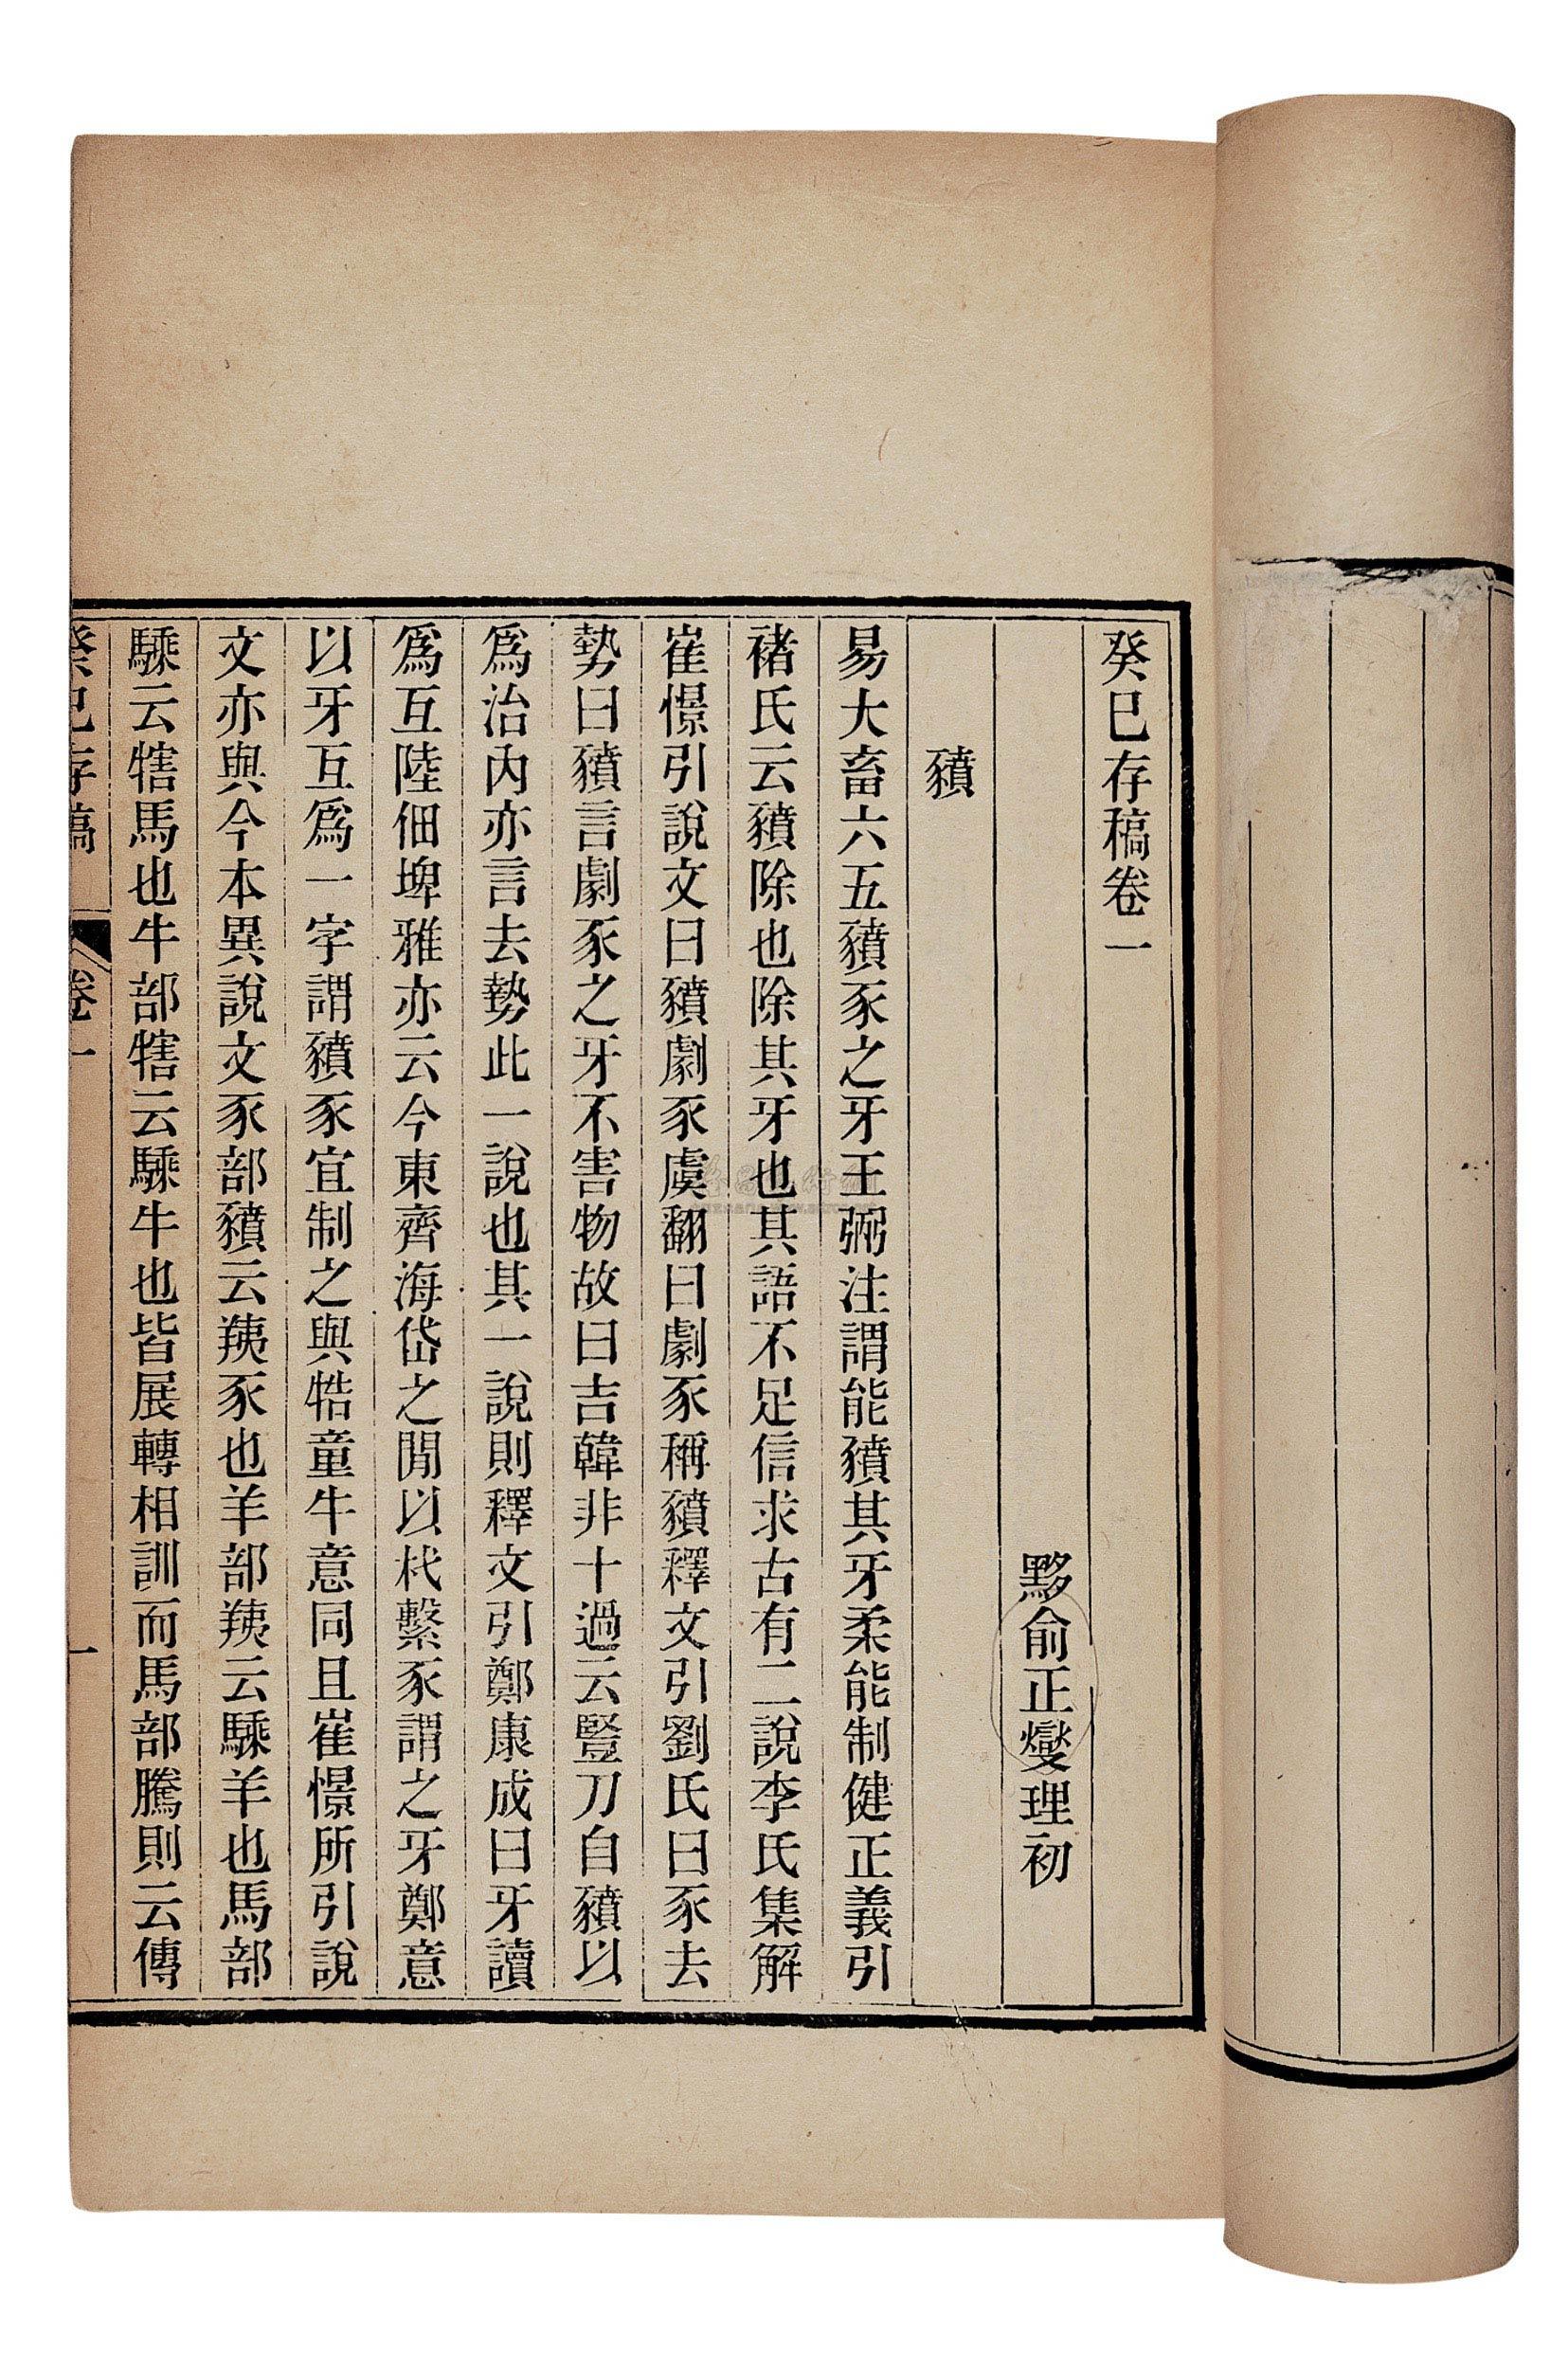 癸巳存稿卷一
黟俞正燮理初
豶
易大畜六五豶豕之牙王弼注謂能豶其牙柔能制健正義引
褚氏云豶除也除其牙也其語不足信求古有二說李氏集解
崔憬引說文曰豶劇豕虞翻曰劇豕稱豶釋文引劉氏曰豕去
勢曰豶言劇豕之牙不害物故曰吉韓非十過云豎刀自豶以
爲治內亦言去勢此一說也其一說則釋文引鄭康成曰牙讀
爲互陸佃埤雅亦云今東齊海岱之閒以杙繫豕謂之牙鄭意
以牙互爲一字謂豶豕宜制之與牿童牛意同且崔憬所引說
文亦與今本異說文豕部豶云羠豕也羊部羠云騬羊也馬部
騬云犗馬也牛部犗云騬牛也皆展轉相訓而馬部騰則云傳
癸巳存稿 卷一 一